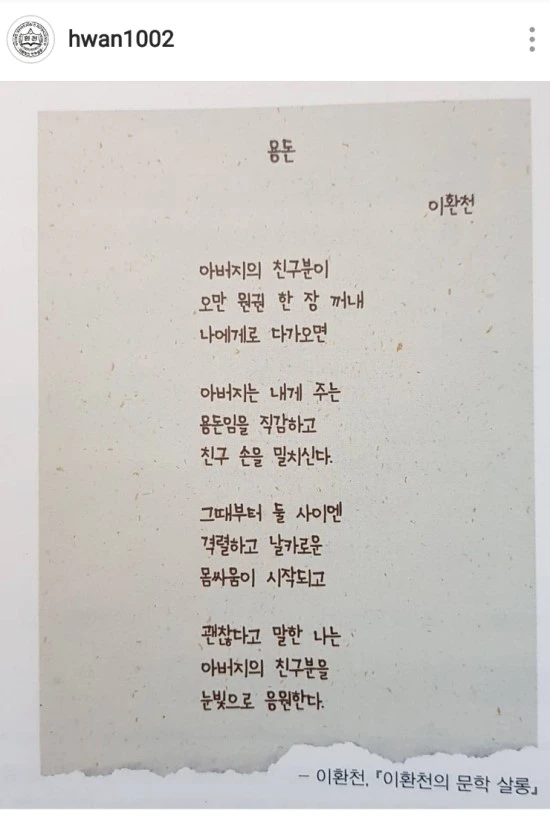 hwan1002
용돈
이환천
아버지의 친구분이
오만 원권 한 장 꺼내
나에게로 다가오면
아버지는 내게 주는
용돈임을 직감하고
친구 손을 밀치신다.
그때부터 둘 사이엔
격렬하고 날카로운
몸싸움이 시작되고
괜찮다고 말한 나는
아버지의 친구분을
눈빛으로 응원한다.
- 이환천, 『이환천의 문학 살롱』